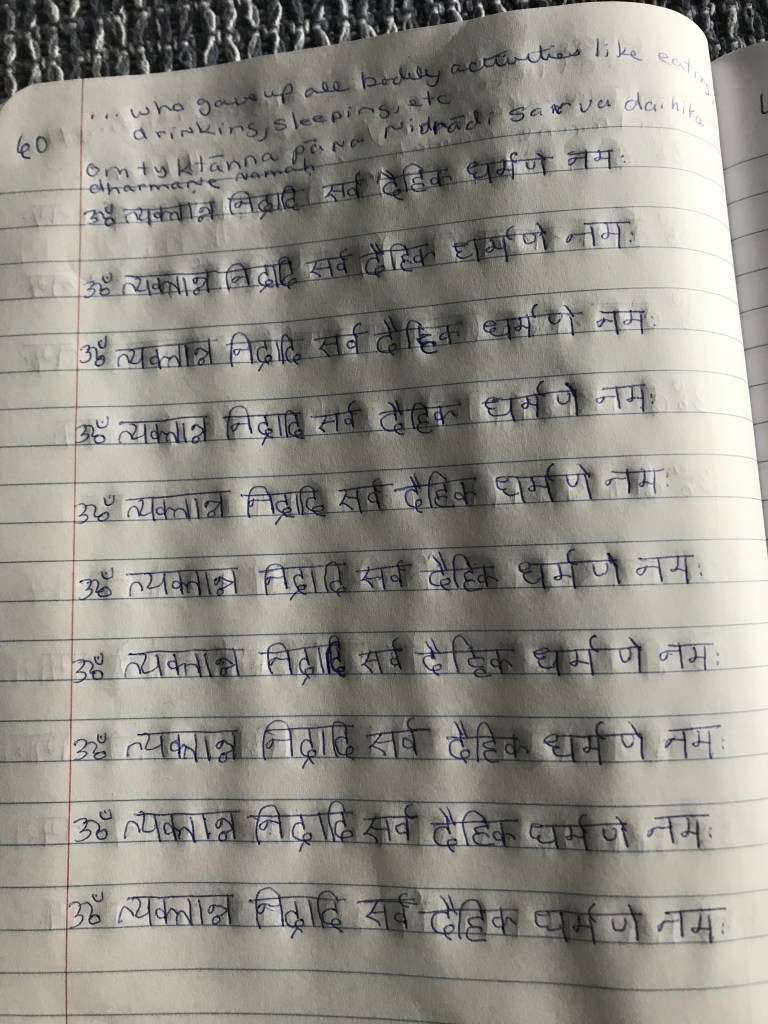 ... who gave up all bodily activities like eating,
drinking, sleeping, etc
60
Om tyktānna pāna nidrādi sarva daihika
dharmane namah
ॐ त्यक्तान्न निद्रादि सर्व दैहिक धर्मणे नमः
ॐ त्यक्तान्न निद्रादि सर्व दैहिक धर्मणे नमः
ॐ त्यक्तान्न निद्रादि सर्व दैहिक धर्मणे नमः
ॐ त्यक्तान्न निद्रादि सर्व दैहिक धर्मणे नमः
ॐ त्यक्तान्न निद्रादि सर्व दैहिक धर्मणे नमः
ॐ त्यक्तान्न निद्रादि सर्व दैहिक धर्मणे नमः
ॐ त्यक्तान्न निद्रादि सर्व दैहिक धर्मणे नमः
ॐ त्यक्तान्न निद्रादि सर्व दैहिक धर्मणे नमः
ॐ त्यक्तान्न निद्रादि सर्व दैहिक धर्मणे नमः
ॐ त्यक्तान्न निद्रादि सर्व दैहिक धर्मणे नमः